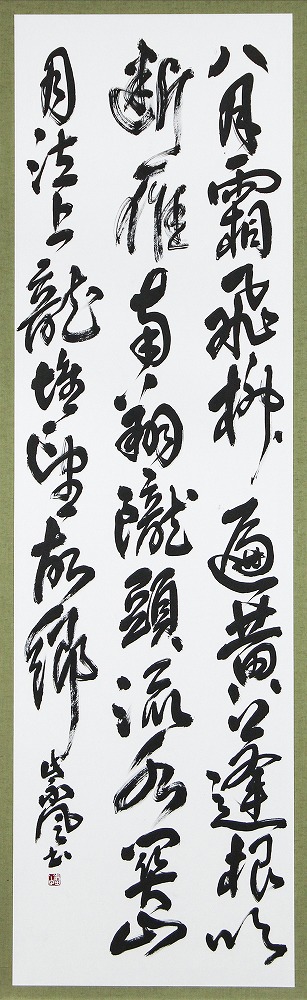 八月霜飛柳遍黄蓬根吹
断雁南翔隴頭流水関山
月泣上龍堆望故郷 書